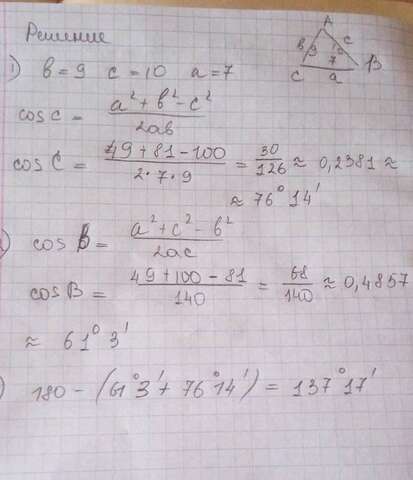 Решение
A
в 9 10 c
7
C a B
1) в = 9 c = 10 a = 7
cos C = a² + в² - c² / 2aв
cos C = 49 + 81 - 100 / 2·7·9 = 30/126 ≈ 0,2381 ≈
≈ 76° 14'
) cos B = a² + c² - в² / 2ac
cos B = 49 + 100 - 81 / 140 = 68/140 ≈ 0,4857
≈ 61° 3'
) 180 - (61° 3' + 76° 14') = 137° 17'